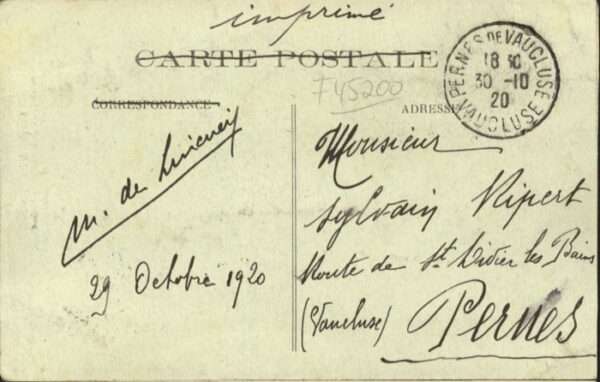 imprimé
CARTE POSTALE
F45200
CORRESPONDANCE
ADRESSE
PERNES DE VAUCLUSE
18 30
30 -10
20
VAUCLUSE
M. de
29 Octobre 1920
Monsieur
Sylvain Ripert
Route de St Didier les Bains
(Vaucluse) Pernes